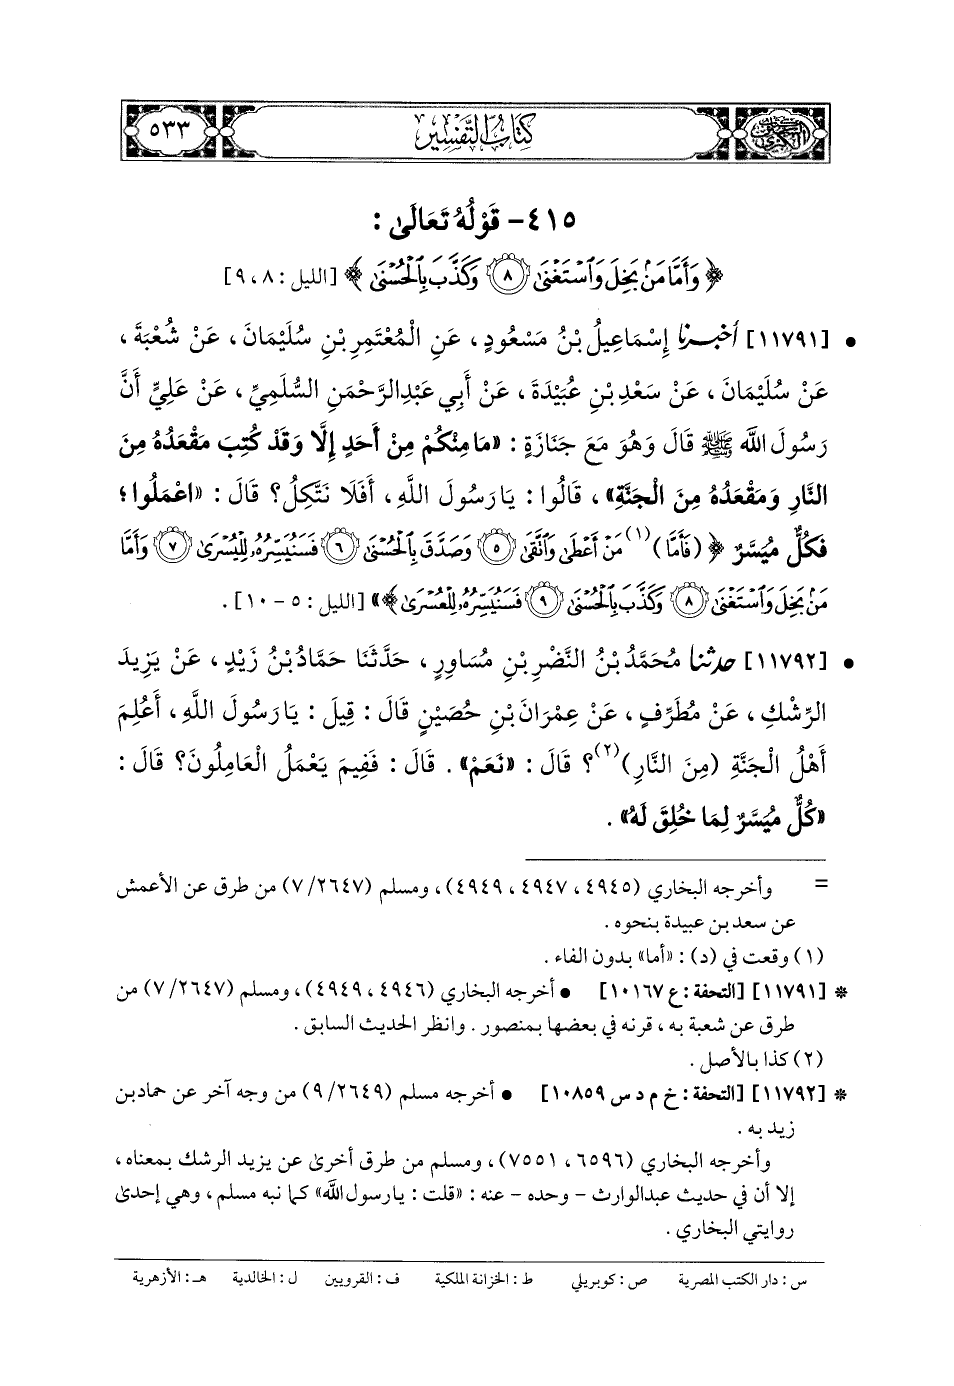 ٥٣٣
كتاب التفسير
السنن الكبرى
٤١٥- قَوْلُهُ تَعَالَىٰ :
﴿ وَأَمَّا مَنۢ بَخِلَ وَٱسْتَغْنَىٰ ٨ وَكَذَّبَ بِٱلْحُسْنَىٰ ﴾ [الليل : ٨، ٩]
• [١١٧٩١] أخبرنا إِسْمَاعِيلُ بْنُ مَسْعُودٍ ، عَنِ الْمُعْتَمِرِ بْنِ سُلَيْمَانَ، عَنْ شُعْبَةَ ،
عَنْ سُلَيْمَانَ ، عَنْ سَعْدِ بْنِ عُبَيْدَةَ ، عَنْ أَبِي عَبْدِالرَّحْمَنِ السُّلَمِيِّ ، عَنْ عَلِيٍّ أَنَّ
رَسُولَ اللَّه ﷺ قَالَ وَهُوَ مَعَ جَنَازَةٍ : «مَا مِنْكُمْ مِنْ أَحَدٍ إِلَّا وَقَدْ كُتِبَ مَقْعَدُهُ مِنَ
النَّارِ وَمَقْعَدُهُ مِنَ الْجَنَّةِ» ، قَالُوا : يَا رَسُولَ اللَّهِ، أَفَلَا نَتَّكِلُ؟ قَالَ : «اعْمَلُوا ؛
فَكُلٌّ مُيَسَّرٌ ﴿ (فَأَمَّا)(١) مَنْ أَعْطَىٰ وَٱتَّقَىٰ ٥ وَصَدَّقَ بِٱلْحُسْنَىٰ ٦ فَسَنُيَسِّرُهُۥ لِلْيُسْرَىٰ ٧ وَأَمَّا
مَنۢ بَخِلَ وَٱسْتَغْنَىٰ ٨ وَكَذَّبَ بِٱلْحُسْنَىٰ ٩ فَسَنُيَسِّرُهُۥ لِلْعُسْرَىٰ ﴾» [الليل : ٥ - ١٠] .
• [١١٧٩٢] حدثنا مُحَمَّدُ بْنُ النَّضْرِ بْنِ مُسَاوِرٍ ، حَدَّثَنَا حَمَّادُ بْنُ زَيْدٍ ، عَنْ يَزِيدَ
الرِّشْكِ ، عَنْ مُطَرِّفٍ ، عَنْ عِمْرَانَ بْنِ حُصَيْنٍ قَالَ : قِيلَ : يَا رَسُولَ اللَّهِ، أَعُلِمَ
أَهْلُ الْجَنَّةِ (مِنَ النَّارِ)(٢)؟ قَالَ : «نَعَمْ» . قَالَ : فَفِيمَ يَعْمَلُ الْعَامِلُونَ؟ قَالَ :
«كُلٌّ مُيَسَّرٌ لِمَا خُلِقَ لَهُ» .
= وأخرجه البخاري (٤٩٤٥ ، ٤٩٤٧ ، ٤٩٤٩)، ومسلم (٧/٢٦٤٧) من طرق عن الأعمش
عن سعد بن عبيدة بنحوه .
(١) وقعت في (د) : «أما» بدون الفاء .
* [١١٧٩١] [التحفة : ع ١٠١٦٧] • أخرجه البخاري (٤٩٤٦ ، ٤٩٤٩)، ومسلم (٧/٢٦٤٧) من
طرق عن شعبة به ، قرنه في بعضها بمنصور . وانظر الحديث السابق .
(٢) كذا بالأصل .
* [١١٧٩٢] [التحفة : خ م د س ١٠٨٥٩] • أخرجه مسلم (٩/٢٦٤٩) من وجه آخر عن حماد بن
زيد به .
وأخرجه البخاري (٦٥٩٦ ، ٧٥٥١)، ومسلم من طرق أخرىٰ عن يزيد الرشك بمعناه ،
إلا أن في حديث عبدالوارث - وحده - عنه : «قلت : يا رسول الله» كما نبه مسلم ، وهي إحدىٰ
روايتي البخاري .
س : دار الكتب المصرية ص : كوبريلي ط : الخزانة الملكية ف : القرويين ل : الخالدية هـ : الأزهرية